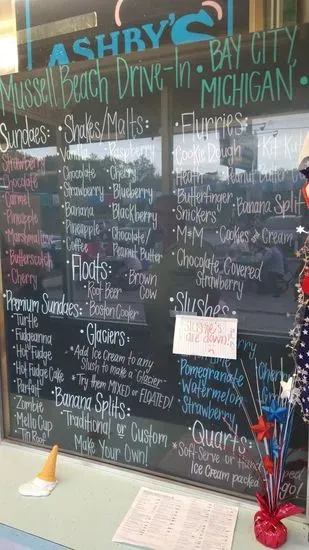 ASHBY'S
Mussell Beach Drive-In • BAY CITY, MICHIGAN •
Sundaes:
Strawberry
Chocolate
Carmel
Pineapple
Marshmallow
Butterscotch
Cherry
Premium Sundaes:
Turtle
Fudgeanna
Hot Fudge
Hot Fudge Cake
Parfait
Zombie
Mello Cup
Tin Roof
• Shakes/Malts:
Vanilla
Chocolate
Strawberry
Banana
Pineapple
Coffee
Raspberry
Cherry
Blueberry
Blackberry
Chocolate/
Peanut Butter
Floats:
• Root Beer
• Brown Cow
• Boston Cooler
• Glaciers:
* Add Ice Cream to any
Slush to make a "Glacier"
* Try them MIXED or FLOATED!
Banana Splits:
Traditional or Custom
Make Your Own!
Flurries:
Cookie Dough
Heath
Butterfinger
Snickers
M&M
Kit Kat
Peanut Butter
Banana Split
Cookies and Cream
Chocolate Covered
Strawberry
Slushes:
Slushie's
are down!
Blueberry
Pomegranate
Watermelon
Strawberry
Quarts:
* Soft-Serve or Hand
Ice Cream packed
go!